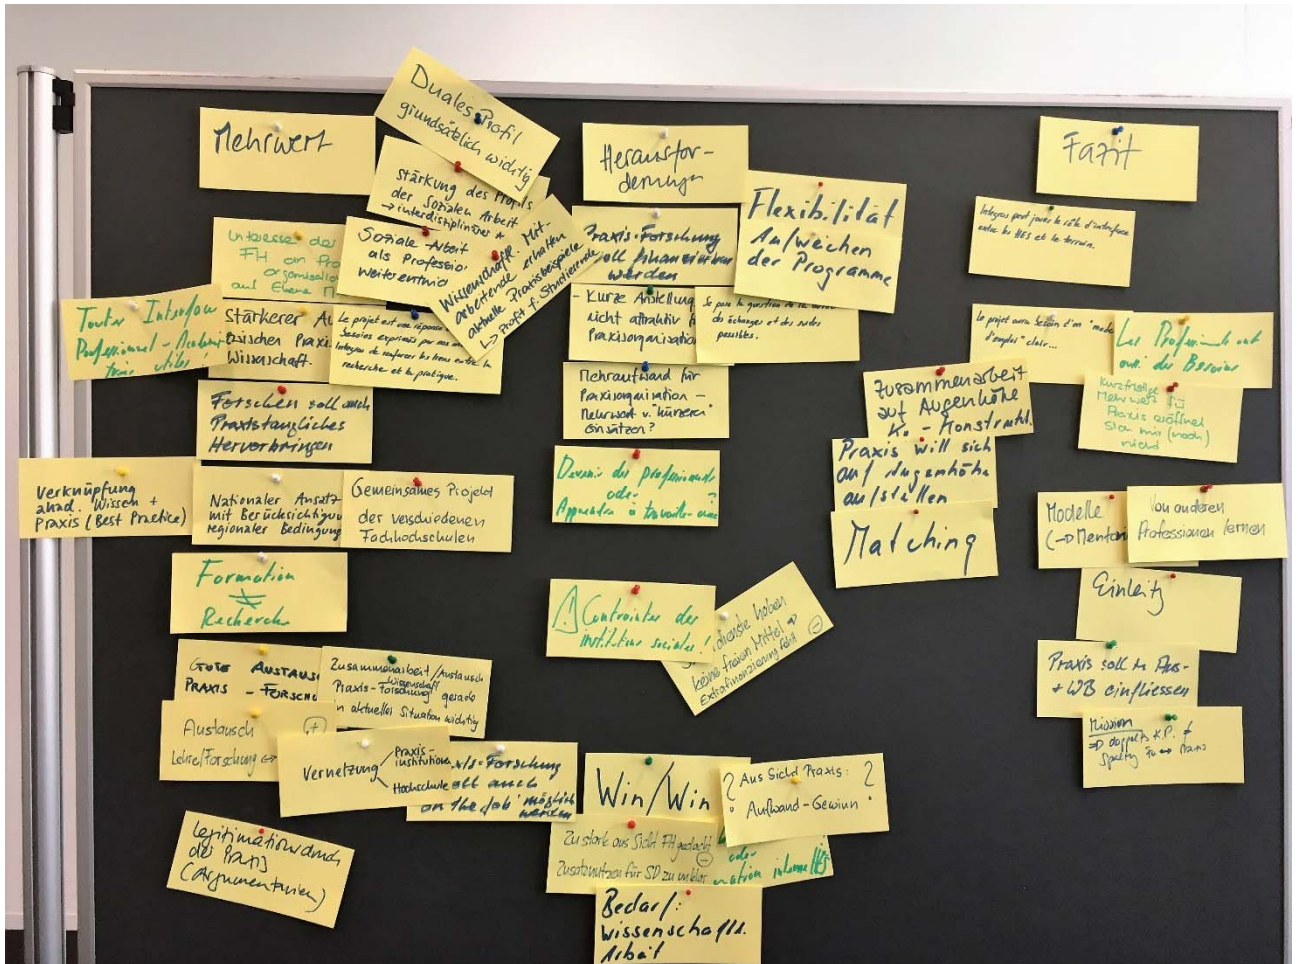 Mehrwert
Duales Profil
grundsätzlich wichtig
Stärkung des Profils
der Sozialen Arbeit
→ interdisziplinäres
Soziale Arbeit
als Profession
Weiterentwid
Wissenschaftl. Mit-
arbeitende erhalten
aktuelle Praxisbeispiele
↳ Profit f. Studierende
Interesse der
FH an
auf Ebene
Toute Interface
Professionnel -
très utiles !
Stärkerer Au
zwischen Praxis
Wissenschaft.
Le projet est une réponse
besoins exprimés par nos
Integras de renforcer les liens entre la
recherche et la pratique.
Forschen soll auch
Praxistaugliches
Hervorbringen
Verknüpfung
akad. Wissen +
Praxis (Best Practice)
Nationaler Ansatz
mit Berücksichtigung
regionaler Bedingung
Gemeinsames Projekt
der verschiedenen
Fachhochschulen
Formation
≠
Recherche
GUTE AUSTAUSC
PRAXIS - FORSCHU
Zusammenarbeit/Austausch
Wissenschaft
Praxis-Forschung gerade
in aktueller Situation wichtig
Austausch (+)
Lehre/Forschung ↔
Vernetzung
Praxis-
institutione
Hochschule
xis-Forschung
oll auch
on the job möglich
werden
Legitimation durch
die Praxis
(Argumentarien)
Herausfor-
derungen
Praxis-Forschung
soll finanzierbar
werden
Flexibilität
Aufweichen
der Programme
- Kurze Anstellung
nicht attraktiv f
Praxisorganisatio
Se pose la question de la durée
des échanges et des
possibles.
Mehraufwand für
Praxisorganisation -
Mehrwert v. kürzeren
Einsätzen?
Devenir des professionnels
oder ?
Apprendre à travailler
Zusammenarbeit
auf Augenhöhe
Ko-Konstrukt.
Praxis will sich
auf Augenhöhe
aufstellen
Matching
! Contraintes des
institutions sociales !
dienste haben
keine freien Mittel ⇒
Extrafinanzierung fehlt (-)
Win/Win
? Aus Sicht Praxis: ?
Aufwand-Gewinn
Zu stark aus Sicht FH gedacht
(-)
Zusatznutzen für SD zu unklar
oder
Bedarf:
wissenschaftl.
Arbeit
Fazit
Integras peut jouer le rôle d'interface
entre les HES et le terrain.
Le projet aura besoin d'un "mode
d'emploi" clair...
Les Professionnels ont
des Besoins
Kurzfristige
Mehrwert für
Praxis eröffnet
sich mir (noch)
nicht
Modelle
(→ Mentori
Von anderen
Professionen lernen
Praxis soll in Aus-
+ WB einfliessen
Mission
⇒ doppeltes K.P. ≠